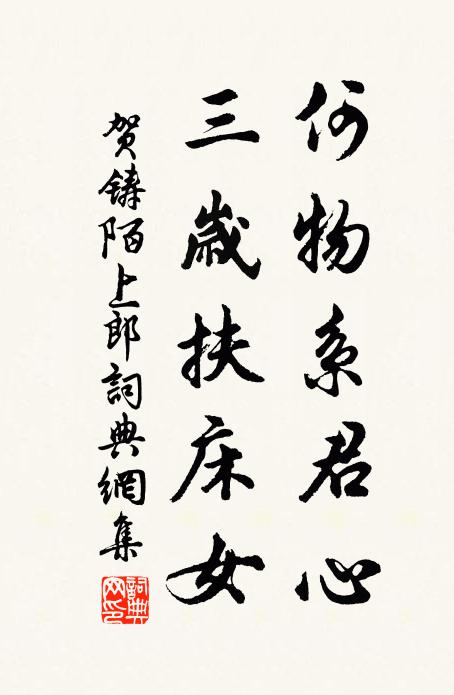 何物系君心
三歲扶床女
贺鋳陌上郎詞典網集
詞典网印